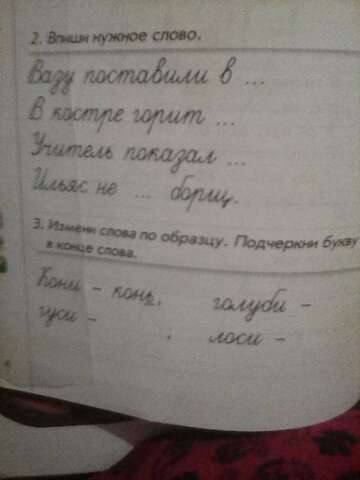 2. Впиши нужное слово.
Вазу поставили в ...
В костре горит ...
Учитель показал ...
Ильяс не ... борщ.
3. Измени слова по образцу. Подчеркни букву
в конце слова.
Кони – конь, голуби –
гуси – , лоси –